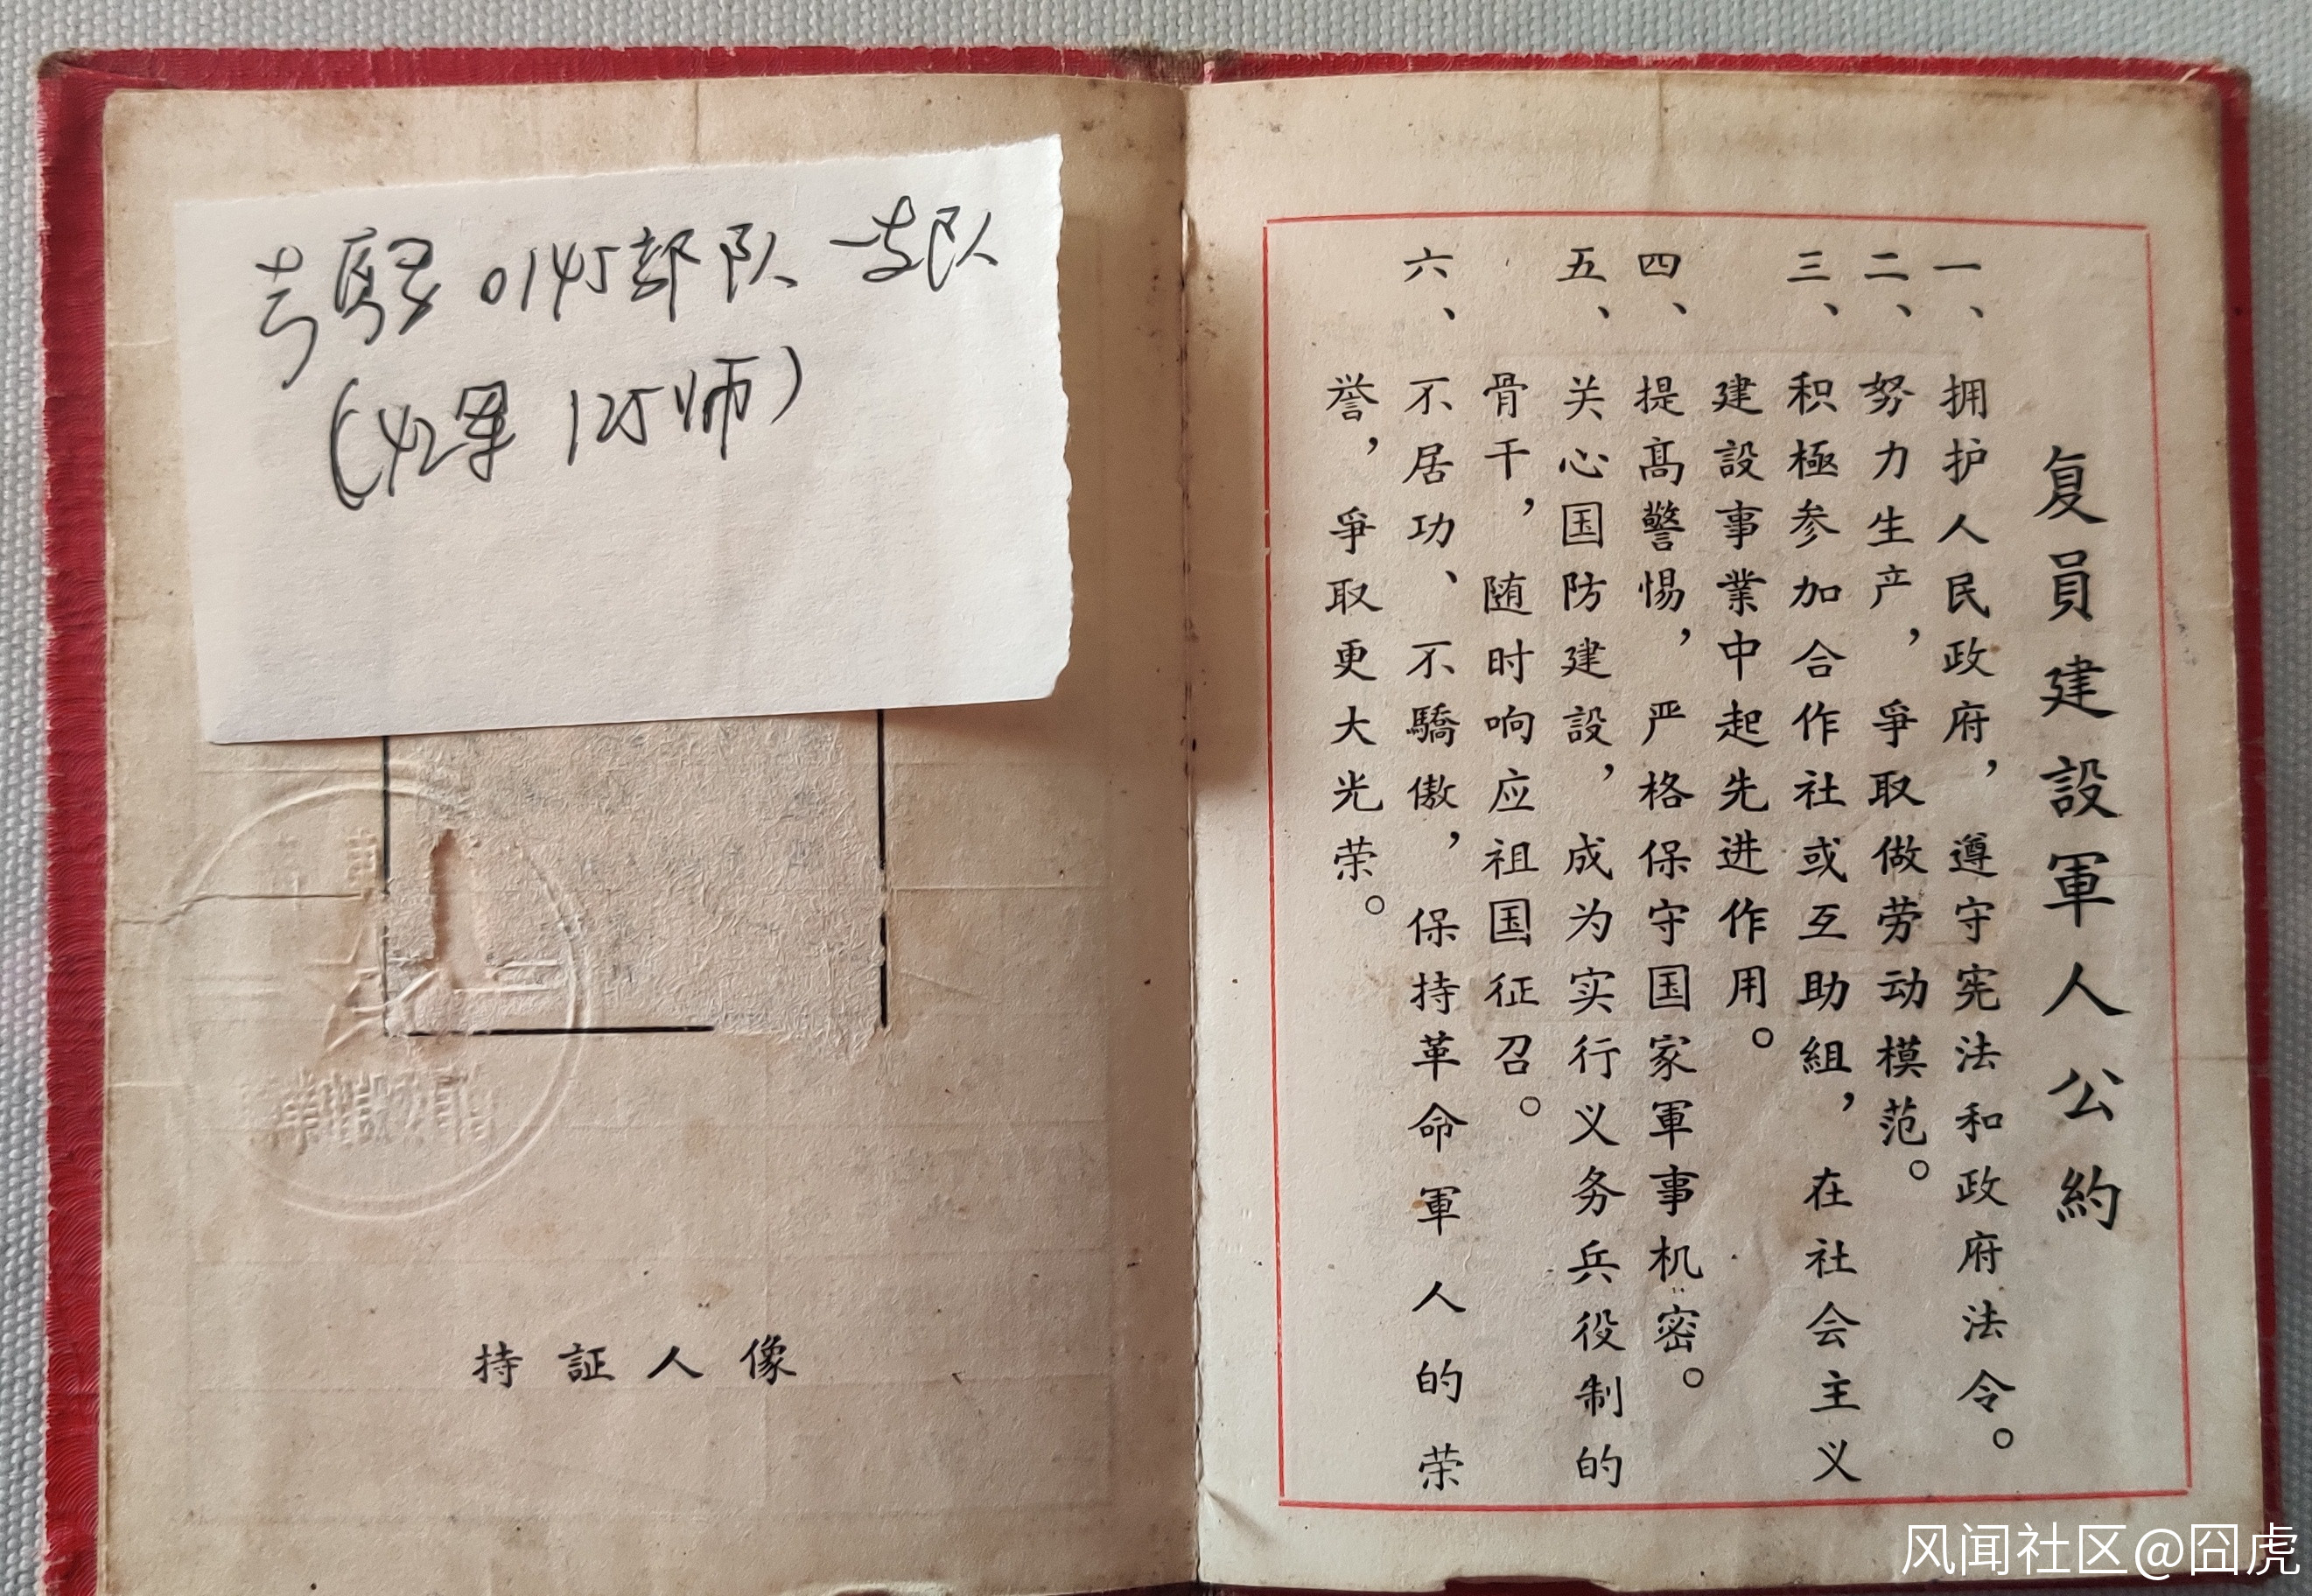 0145部队 一支队
(42军 125师)
持証人像
复員建設軍人公約
一、拥护人民政府，遵守宪法和政府法令。
二、努力生产，爭取做劳动模范。
三、积極参加合作社或互助組，在社会主义
建設事業中起先进作用。
四、提髙警惕，严格保守国家軍事机密。
五、关心国防建設，成为实行义务兵役制的
骨干，随时响应祖国征召。
六、不居功、不驕傲，保持革命軍人的荣
誉，爭取更大光荣。
风闻社区@囧虎